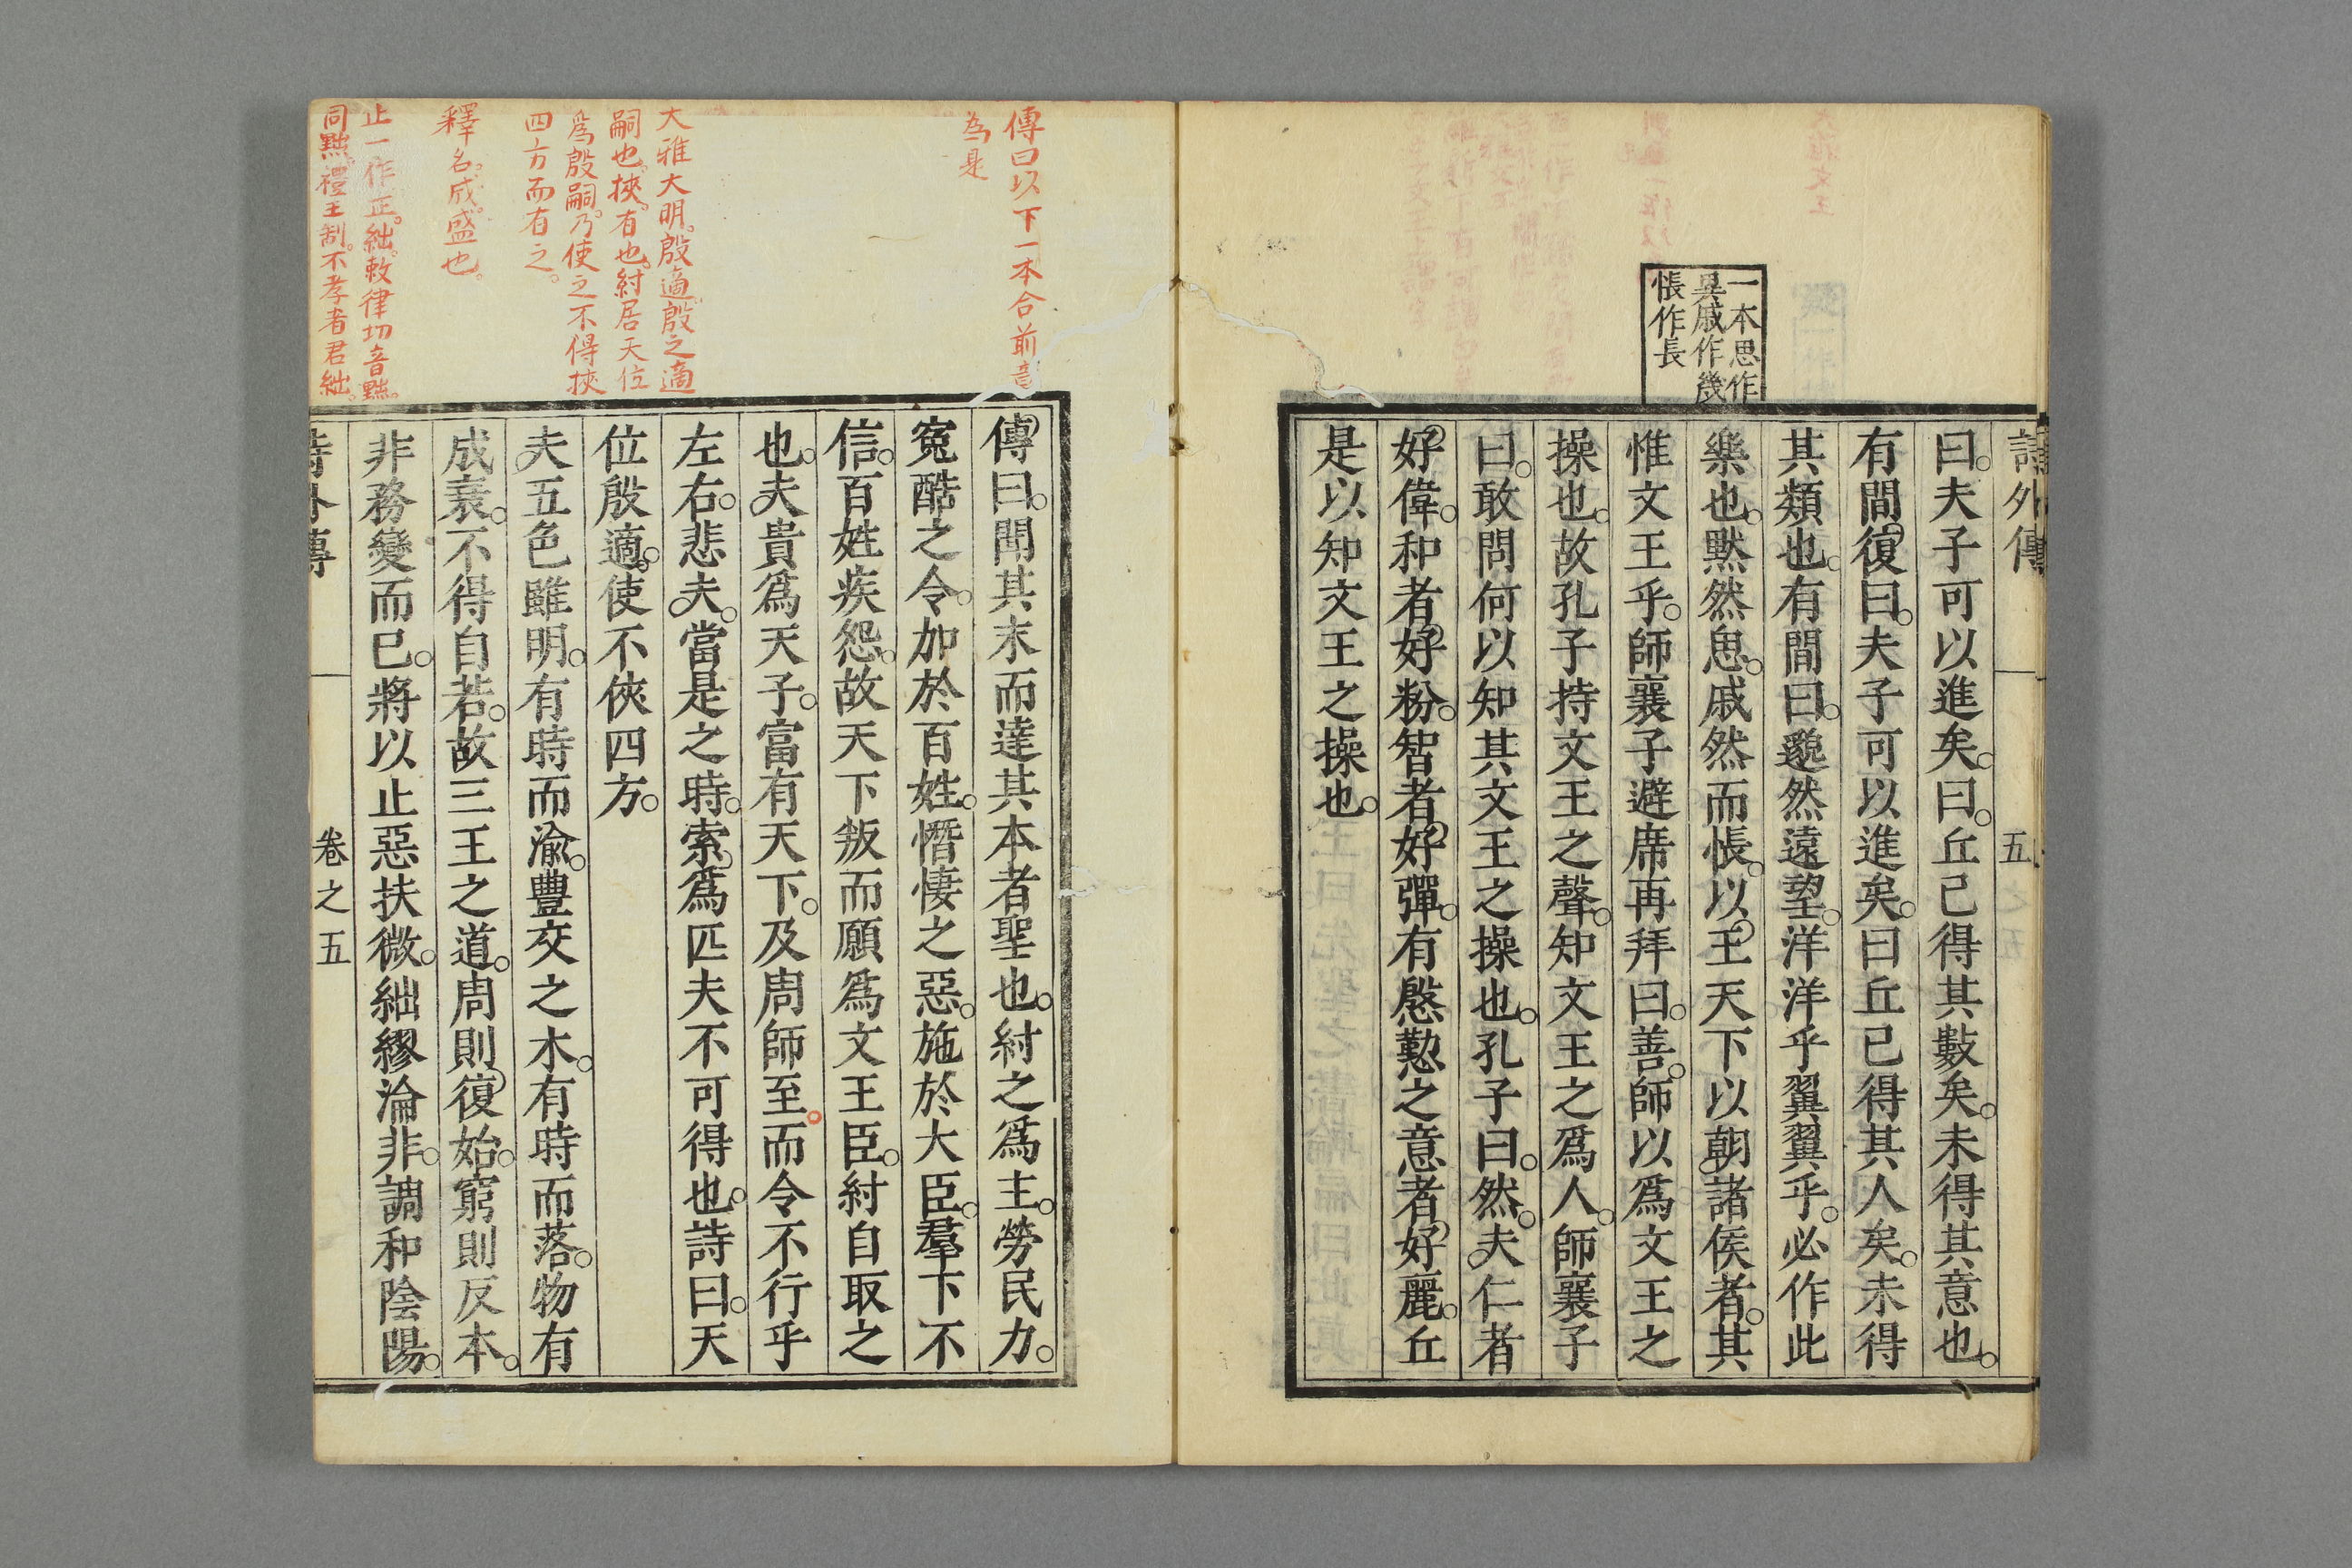 一本思作
異戚作幾
悵作長
詩外傳
五
曰夫子可以進矣曰丘己得其數矣未得其意也
有間復曰夫子可以進矣曰丘己得其人矣未得
其類也有間曰邈然遠望洋洋乎翼翼乎必作此
樂也黙然思戚然而悵以王天下以朝諸侯者其
惟文王乎師襄子避席再拜曰善師以爲文王之
操也故孔子持文王之聲知文王之爲人師襄子
曰敢問何以知其文王之操也孔子曰然夫仁者
好偉和者好粉智者好彈有慇懃之意者好麗丘
是以知文王之操也
傳曰以下一本合前章
為是
大雅大明殷適殷之適
嗣也挾有也紂居天位
爲殷嗣乃使之不得挾
四方而有之
釋名成盛也
止一作正絀敕律切音黜
同黜禮王制不孝者君絀
傳曰聞其末而達其本者聖也紂之爲主勞民力
寃酷之令加於百姓憯悽之惡施於大臣羣下不
信百姓疾怨故天下叛而願爲文王臣紂自取之
也夫貴爲天子富有天下及周師至而令不行乎
左右悲夫當是之時索爲匹夫不可得也詩曰天
位殷適使不俠四方
夫五色雖明有時而渝豐交之木有時而落物有
成衰不得自若故三王之道周則復始窮則反本
非務變而已將以止惡扶微絀繆淪非調和陰陽
詩外傳
卷之五